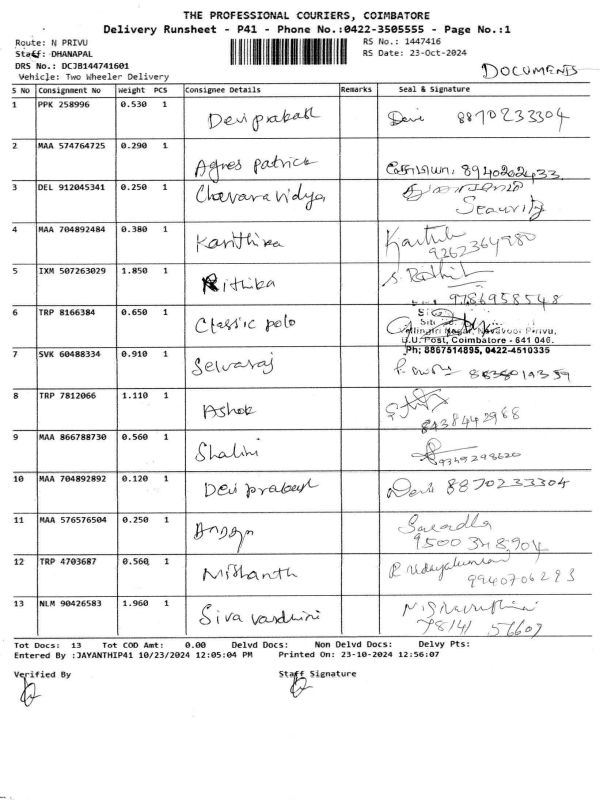 THE PROFESSIONAL COURIERS, COIMBATORE
Delivery Runsheet - P41 - Phone No.:0422-3505555 - Page No.:1
Route: N PRIVU RS No.: 1447416
Staff: DHANAPAL RS Date: 23-Oct-2024
DRS No.: DCJB144741601
Vehicle: Two Wheeler Delivery
DOCUMENTS
S No Consignment No Weight PCS Consignee Details Remarks Seal & Signature
1 PPK 258996 0.530 1 Devi prakash Devi 8870233304
2 MAA 574764725 0.290 1 Agnes patrick 8940262433
3 DEL 912045341 0.250 1 Security
4 MAA 704892484 0.380 1 Karthika Karthik
9262364980
5 IXM 507263029 1.850 1 Rithika S. Rithik
9786958548
6 TRP 8166384 0.650 1 Classic polo
Nagar, Navavoor Privu,
Post, Coimbatore - 641 046.
Ph: 8867514895, 0422-4510335
7 SVK 60488334 0.910 1 Selvaraj
8 TRP 7812066 1.110 1 Ashok
8438442968
9 MAA 866788730 0.560 1 Shalini 9345298620
10 MAA 704892892 0.120 1 Devi prakash Devi 8870233304
11 MAA 576576504 0.250 1 Saradha
9500348904
12 TRP 4703687 0.560 1 Nishanth R Udayakumar
9940706293
13 NLM 90426583 1.960 1 Siva vardhini
78141 56607
Tot Docs: 13 Tot COD Amt: 0.00 Delvd Docs: Non Delvd Docs: Delvy Pts:
Entered By :JAYANTHIP41 10/23/2024 12:05:04 PM Printed On: 23-10-2024 12:56:07
Verified By Staff Signature